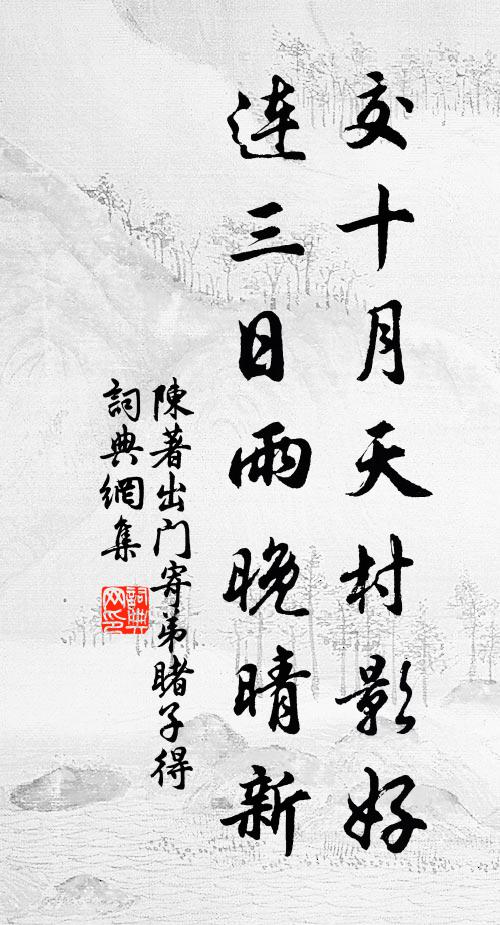 交十月天村影好
連三日雨晚晴新
陳著出门寄弟睹子得
詞典網集
詞典网印